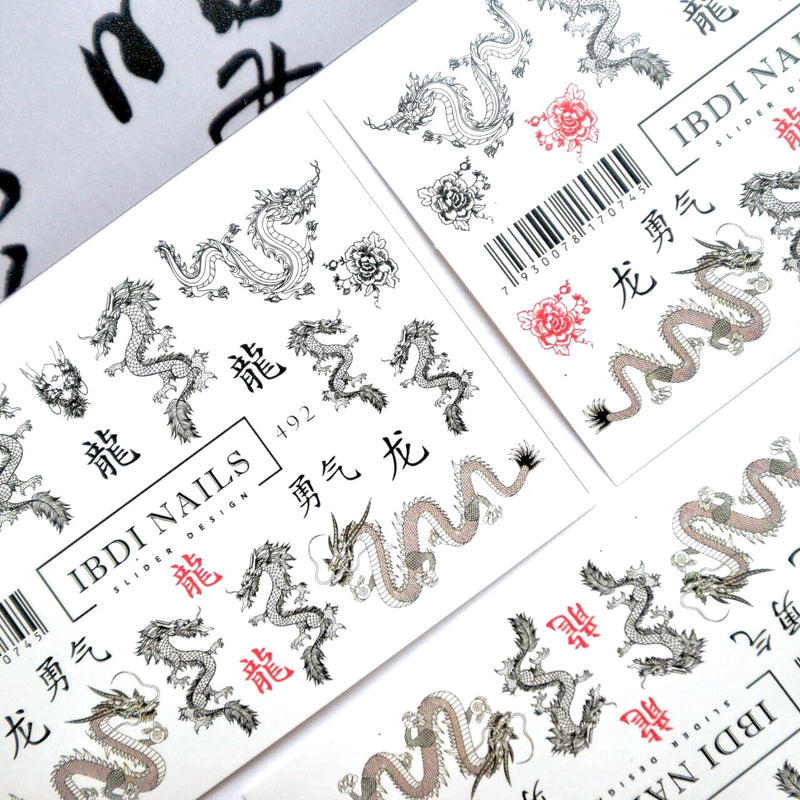 龍
龍
492
IBDI NAILS
SLIDER DESIGN
勇气
龙
龍
龍
0745
勇气
龙
龍
IBDI NAILS
SLIDER DESIGN
龍
7 930078 170745
勇气
龙
龍
龍
勇气
IBDI NA
SLIDER DESIGN